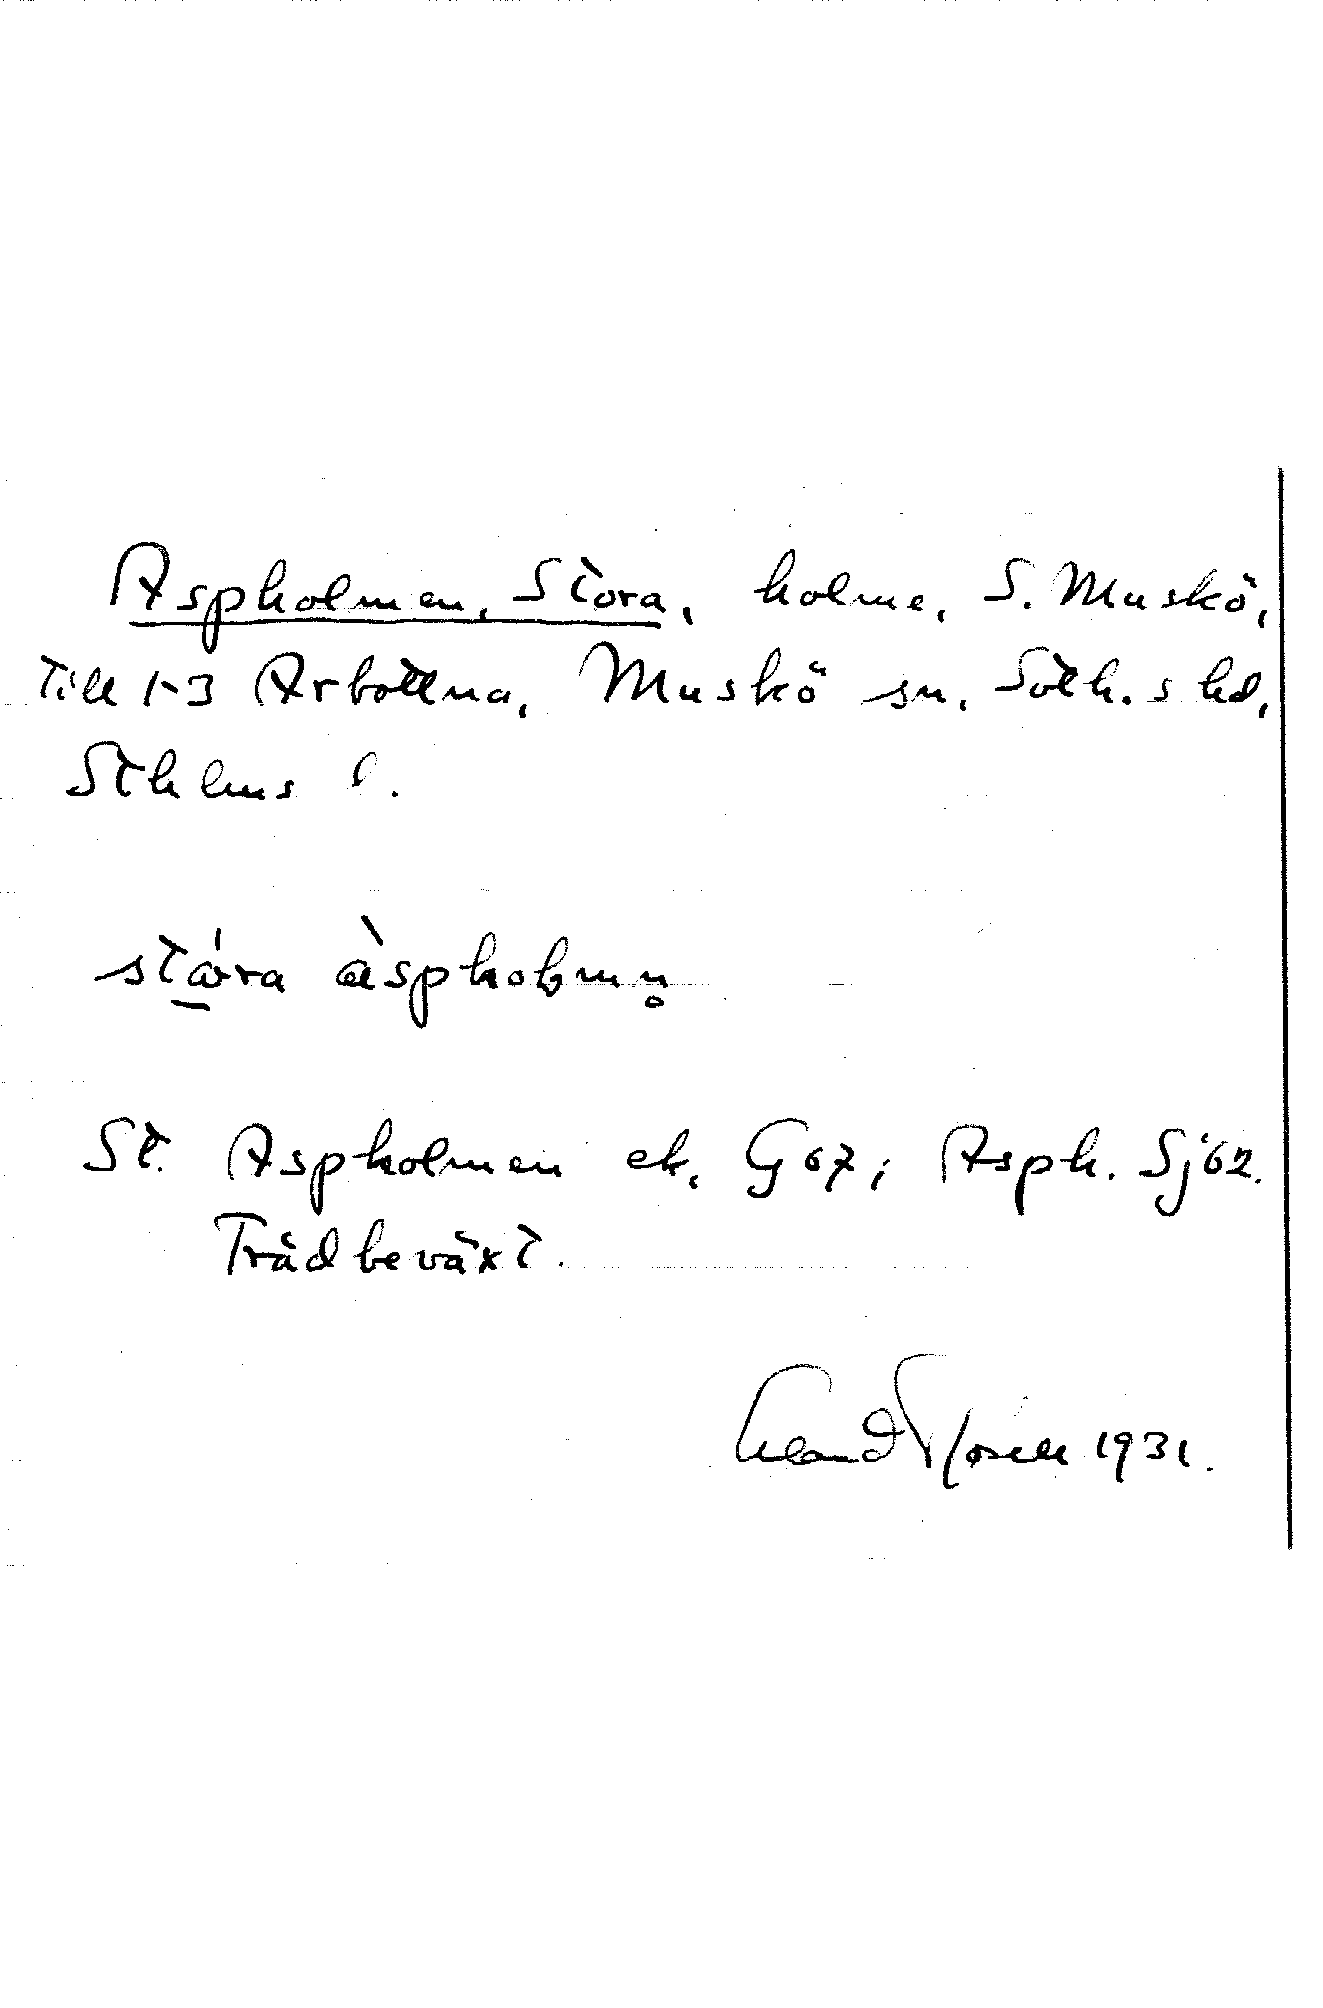 Aspholmen, Stora, holme, S. Muskö,
till 1-3 Arbottna, Muskö sn, Soth.s hd,
Sthlms l.
stóra àspholmn̥
St. Aspholmen ek. G 67; Asph. Sj 62.
Trädbeväxt.
1931.